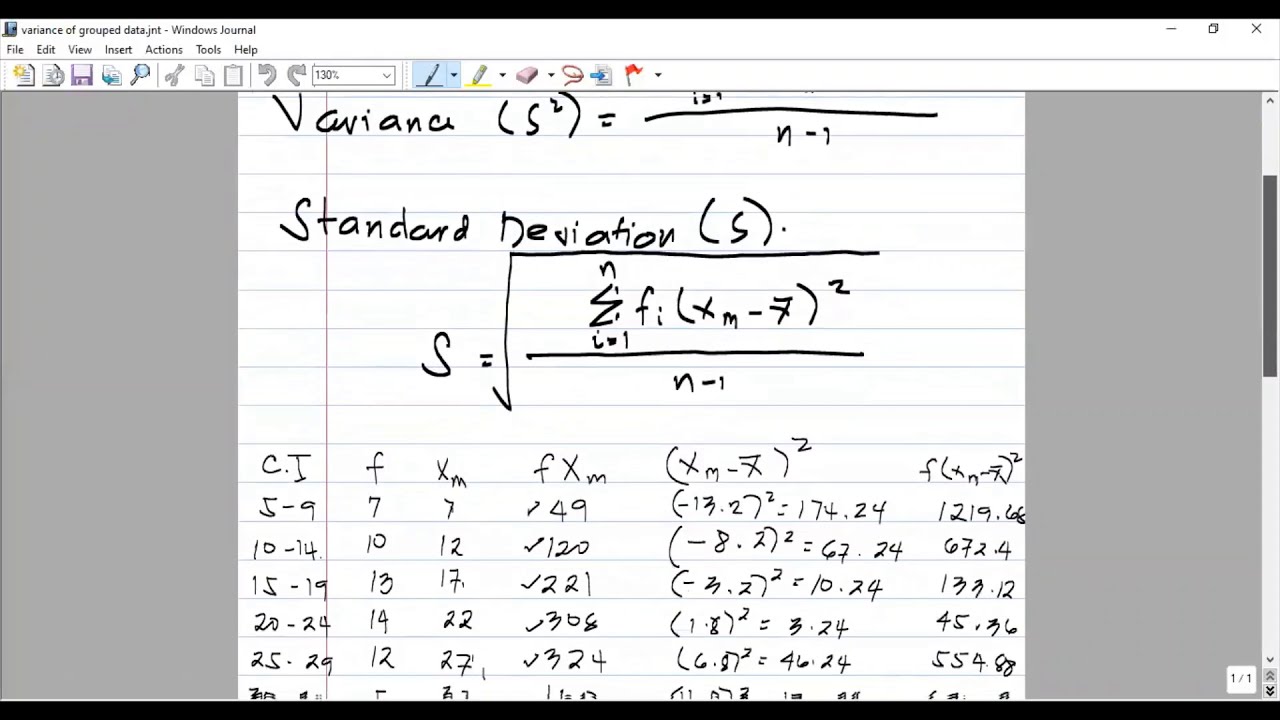 variance of grouped data.jnt - Windows Journal
File Edit View Insert Actions Tools Help
130%
i=1
Variance (S²) = n-1
Standard Deviation (S).
n
Σ fi (xm - x̄)²
i=1
S =
n-1
C.I f Xm f Xm (Xm - x̄)² f(xm-x̄)²
5-9 7 7 ✓49 (-13.2)² = 174.24 1219.68
10-14. 10 12 ✓120 (-8.2)² = 67.24 672.4
15-19 13 17. ✓221 (-3.2)² = 10.24 133.12
20-24 14 22 ✓308 (1.8)² = 3.24 45.36
25-29 12 27 ✓324 (6.8)² = 46.24 554.88
1 / 1